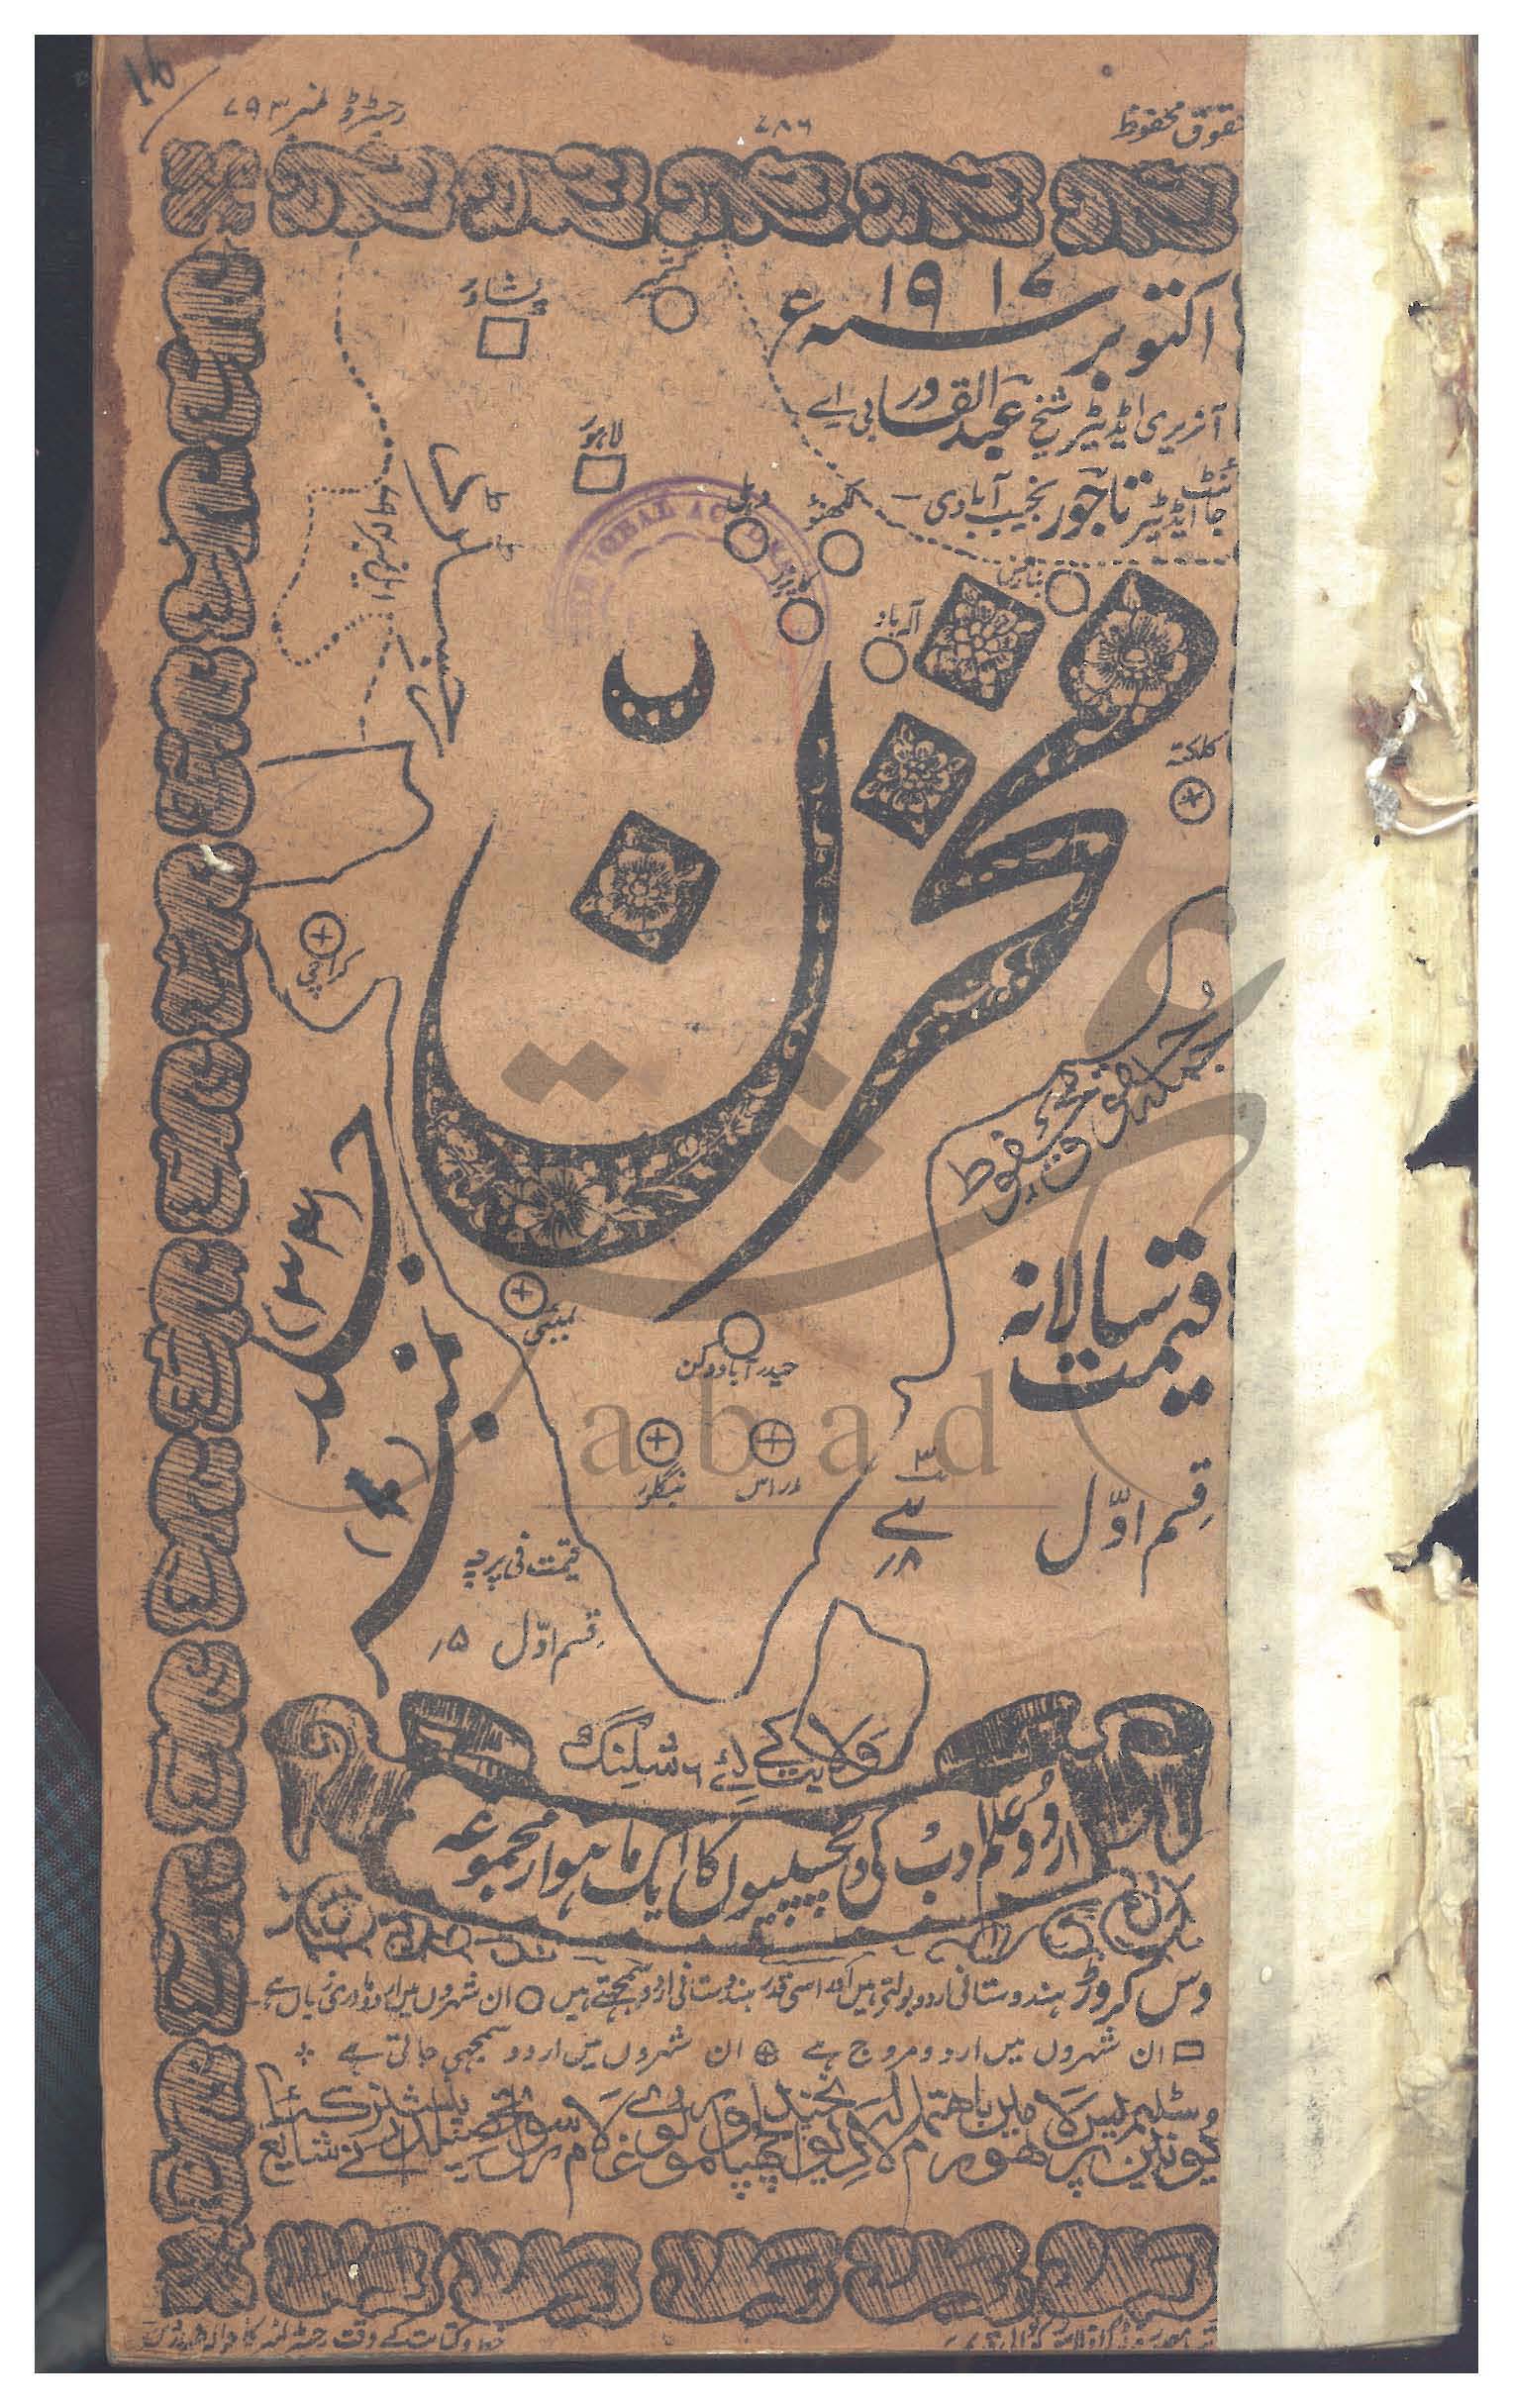 حقوق محفوظ
۷۸۶
رجسٹرڈ نمبر ۷۹۳
16
اکتوبر سنہ ۱۹۱۷ء
آنریری ایڈیٹر شیخ عبدالقادر بی اے
جائنٹ ایڈیٹر تاجور نجیب آبادی
کشمیر
پشاور
لاہور
دہلی
لکھنؤ
بنارس
آگرہ
الہ آباد
کلکتہ
مخزن
کراچی
جملہ حقوق محفوظ
جلد (۳۳)
نمبر (۷)
بمبئی
حیدرآباد دکن
بنگلور
مدراس
abad
قیمت سالانہ
قسم اوّل
قیمت فی پرچہ
قسم اوّل ۵؍
ولایت کے لئے ۶ شلنگ
اردو علم ادب کی دلچسپیوں کا ایک ماہوار مجموعہ
دس کروڑ ہندوستانی اردو بولتے ہیں اور اسی قدر ہندوستانی اردو سمجھتے ہیں ○ ان شہروں میں اردو مادری زبان ہے
□ ان شہروں میں اردو مروج ہے ⊕ ان شہروں میں اردو سمجھی جاتی ہے
یونین سٹیم پریس لاہور میں باہتمام
خط و کتابت کے وقت رجسٹر نمبر کا حوالہ ضرور دیں